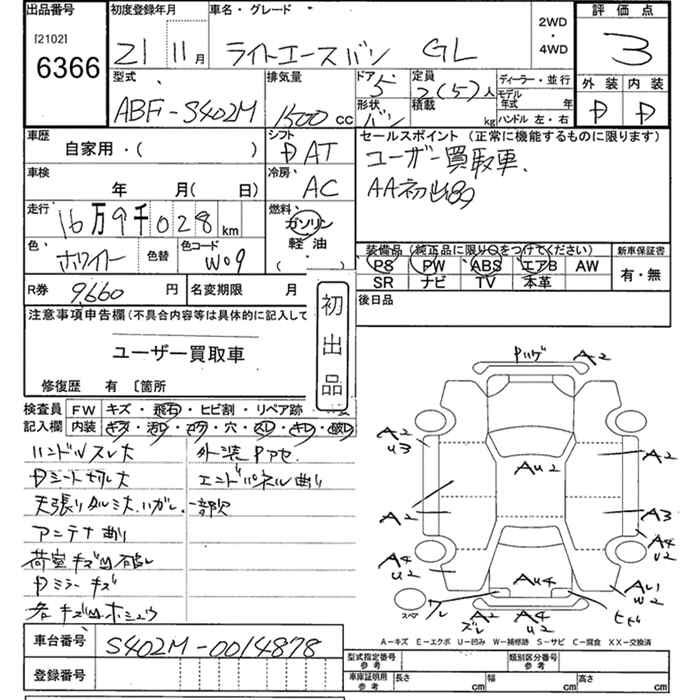 出品番号 初度登録年月 車名・グレード 2WD ・ 4WD 評価点
[2102]
6366 21 11月 ライトエースバン GL 3
型式 排気量 ドア 5 定員 2(5)人 ディーラー・並行 外装 内装
ABF-S402M 1500cc 形状 バン 積載 kg モデル年式 年 D D
ハンドル 左・右
車歴 シフト セールスポイント (正常に機能するものに限ります)
自家用・( ) DAT ユーザー買取車.
車検 冷房 AA初出品
年 月( 日) AC
走行 燃料
16万9千028km ガソリン
軽油
( )
色 ホワイト 色替 色コード W09
装備品 (純正品に限り○をつけてください) 新車保証書
PS PW ABS エアB AW 有・無
SR ナビ TV 本革
R券 9,660円 名変期限 月 後日品
注意事項申告欄(不具合内容等は具体的に記入して
ユーザー買取車
初出品
修復歴 有 〔箇所
検査員 FW キズ・飛石・ヒビ割・リペア跡
記入欄 内装 キズ・汚レ・コゲ・穴・スレ・キレ・破レ
ハンドルスレ大 外装Pアセ
Dシート切レ大 エンドパネル曲り
天張りタルミ大、ハガレ、一部欠
アンテナ曲り
荷室キズ凹破レ
Dミラーキズ
各キズ凹ホシュウ
Pハゲ A2
A2 U3
AU2
A2
A2
A3
A4 U2
A4 U2
AU4
ワレ
A2 ズレ
A4 U2
ヒビ
AU W2
スペア
A-キズ E-エクボ U-凹み W-補修跡 S-サビ C-腐食 XX-交換済
車台番号 S402M-0014878
登録番号
型式指定番号 参考 類別区分番号 参考
車庫証明用 参考 長さ cm 幅 cm 高さ cm